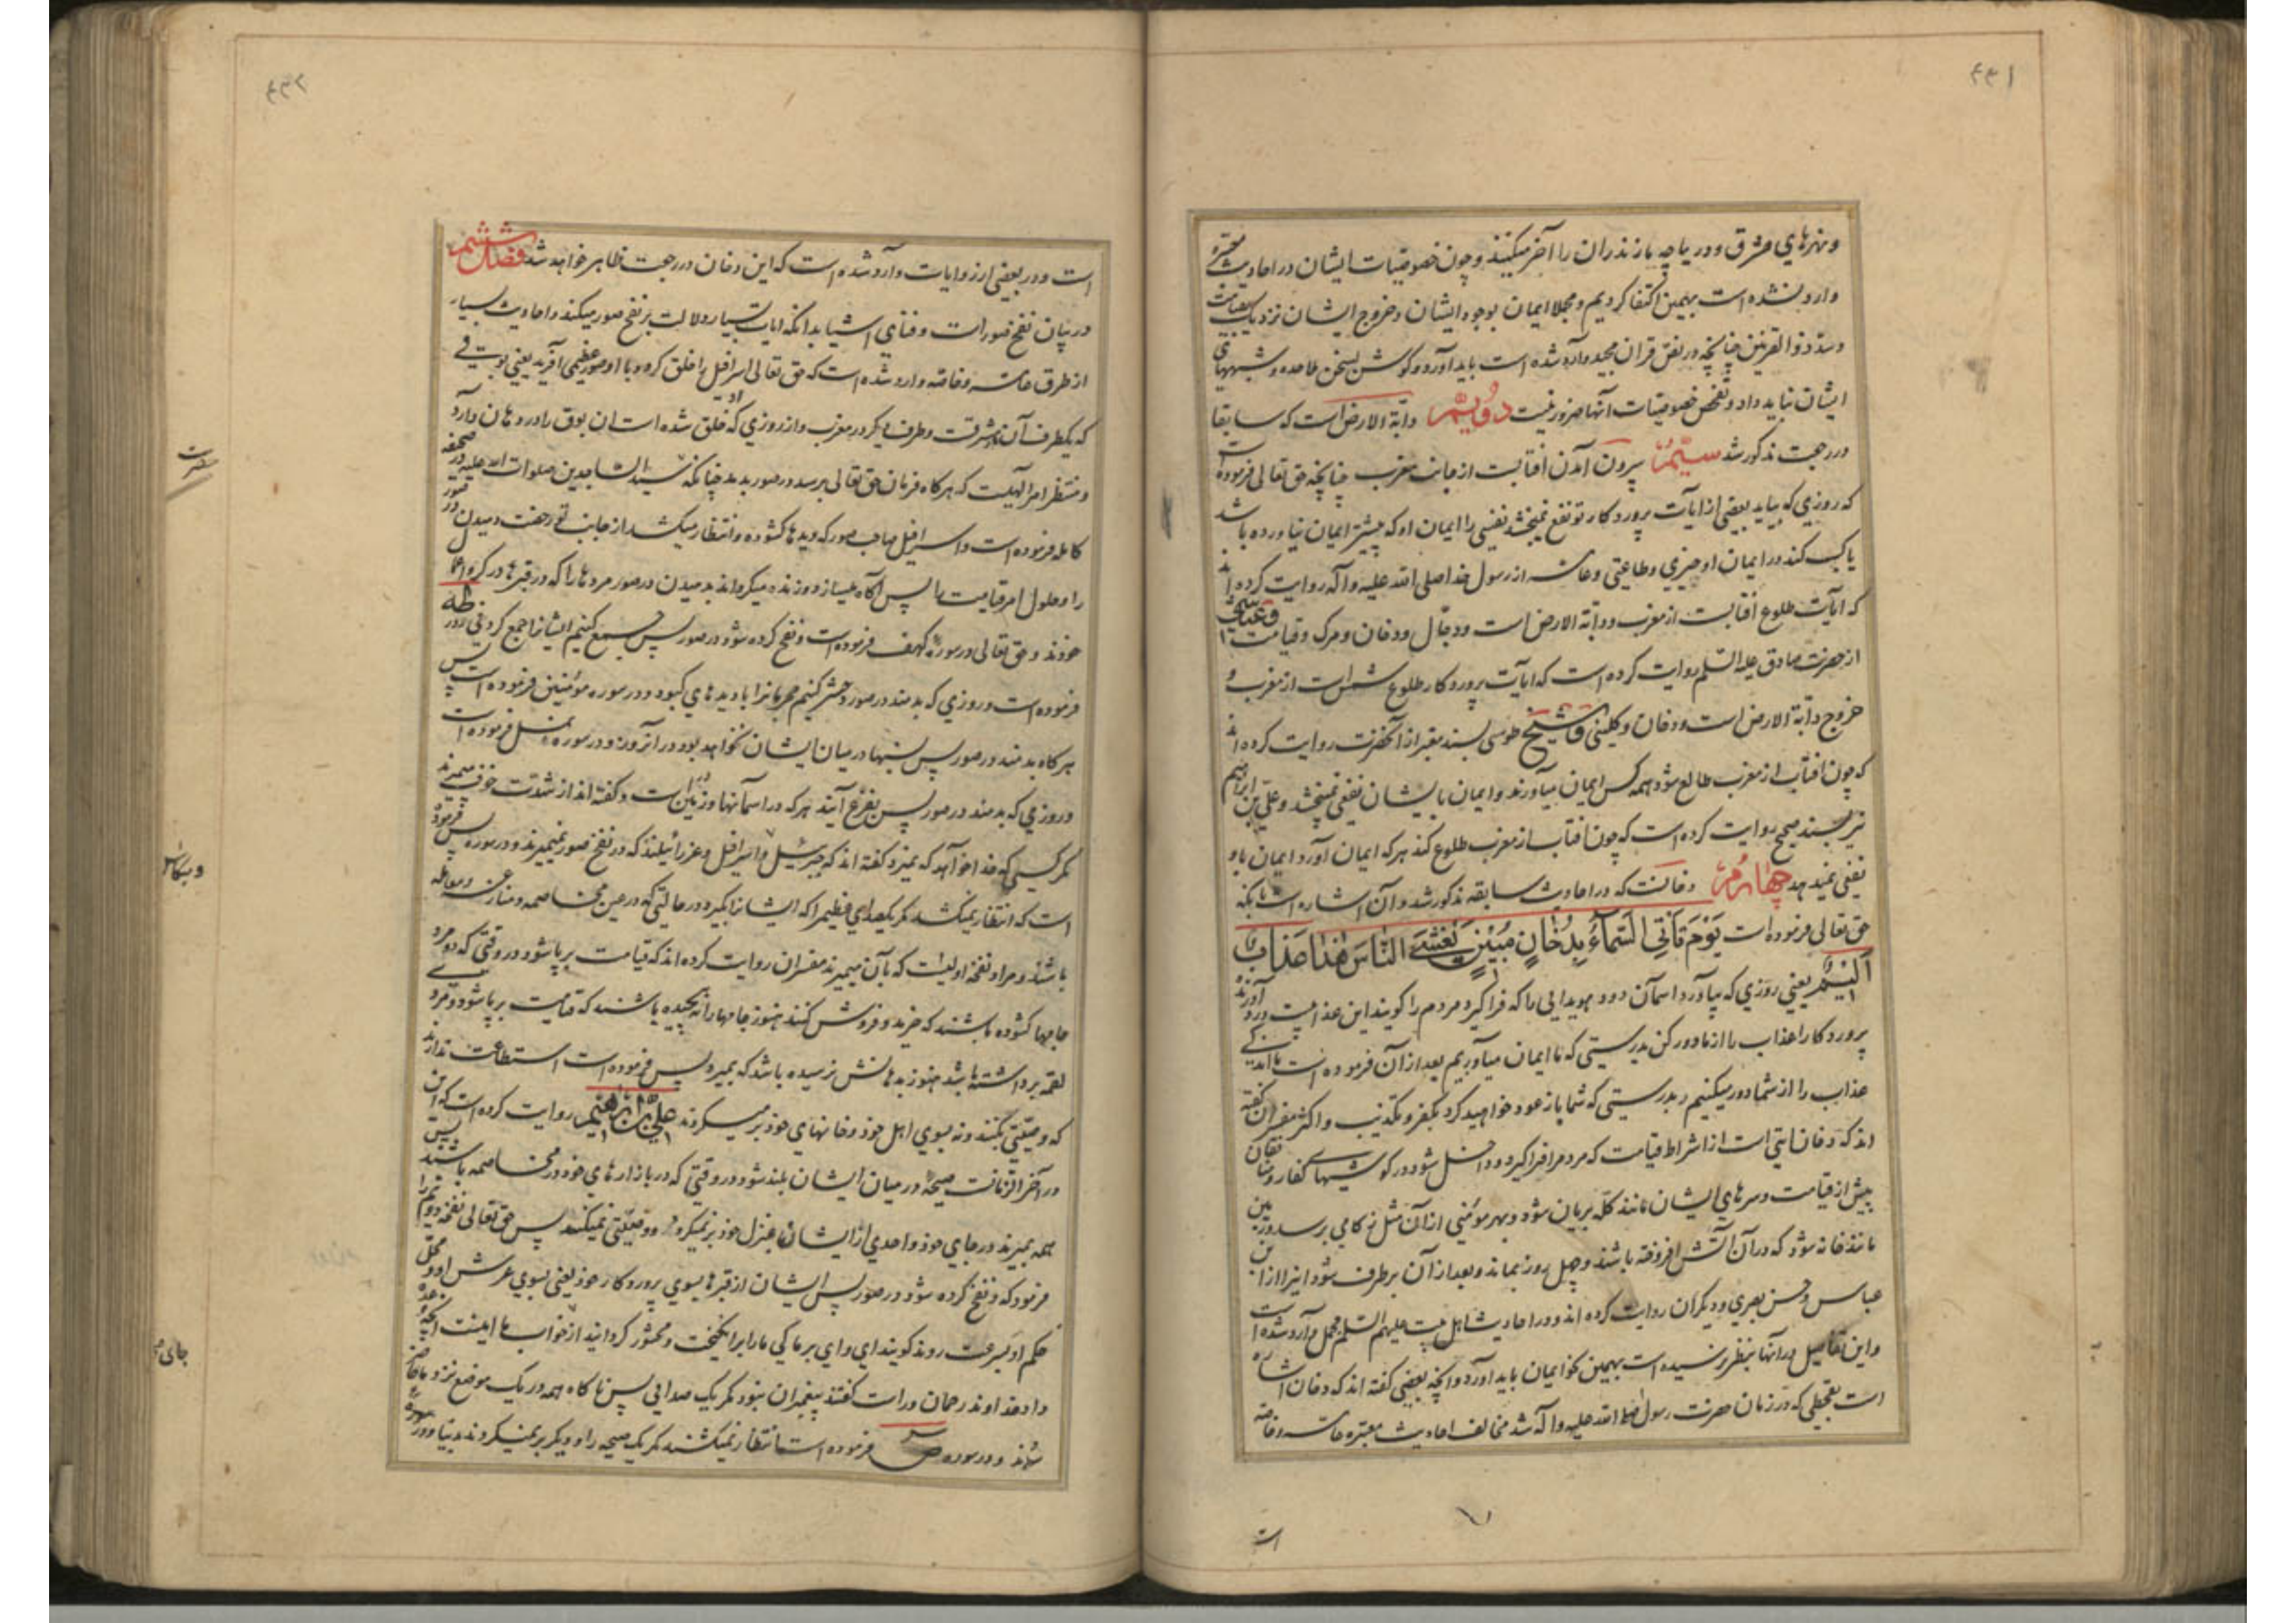 ۴۴۱
و نهرهای مشرق و دریاچه مازندران را آخر میکنند و چون خصوصیات ایشان در احادیث معتبره
وارد نشده است بهمین اکتفا کردیم و مجملا ایمان بوجود ایشان و خروج ایشان نزدیک بقیامت
و سد ذوالقرنین چنانچه در نص قران مجید وارد شده است باید آورد و گوش بسخن ملاحده و شبههای
ایشان نباید داد و تفحص خصوصیات آنها ضرور نیست دویّم دابّة الارض است که سابقا
در رجعت مذکور شد سیّم بیرون آمدن افتابست از جانب مغرب چنانچه حق تعالی فرموده است
که روزی که بیاید بعضی از ایآت پروردکار تو نفع نمیبخشد نفسی را ایمان او که پیشتر ایمان نیاورده باشد
یا کسب کند در ایمان او چیزی و طاعتی و عامه از رسول خدا صلی الله علیه و آله روایت کرده اند
که ایآت طلوع افتابست از مغرب و دابة الارض است و دجّال و دخان و مرک و قیامت و عیّاشی
از حضرت صادق علیه السّلم روایت کرده است که ایآت پروردکار طلوع شمس است از مغرب و
خروج دابّة الارض است و دخان و کلینی و شیخ طوسی بسند معتبر از آنحضرت روایت کرده اند
که چون افتاب از مغرب طالع شود همه کس ایمان میآورند و ایمان بایشان نفعی نمیبخشد و علی بن ابراهیم
نیز بسند صحیح روایت کرده است که چون افتاب از مغرب طلوع کند هر که ایمان آورد ایمان باو
نفعی نمیدهد چهارم دخانست که در احادیث سابقه مذکور شد و آن اشاره است بانکه
حق تعالی فرموده است یَوْمَ تَأتِی السَّمآءُ بِدُخانٍ مُبینٍ یَغْشَی النّاسَ هٰذا عَذابٌ
اَلیمٌ یعنی روزی که بیاورد اسمان دود هویدایی را که فرا گیرد مردم را کویند این عذابیست درد آورنده
پروردکارا عذاب را از ما دور کن بدرستی که ما ایمان میآوریم بعد از آن فرموده است ما اندکی
عذاب را از شما دور میکنیم و بدرستی که شما باز عود خواهید کرد بکفر و تکذیب و اکثر مفسران گفته
اند که دخان ایتی است از اشراط قیامت که مردم را فرا گیرد و داخل شود در گوشهای کفار و منافقان
پیش از قیامت و سرهای ایشان مانند کله بریان شود و بهر مؤمنی از آن مثل زکامی برسد و زمین
مانند خانه شود که در آن آتش افروخته باشند و چهل روز بماند و بعد از آن برطرف شود اینرا از ابن
عباس و حسن بصری و دیگران روایت کرده اند و در احادیث اهل بیت علیهم السّلم مجمل وارد شده است
و این تفاصیل در آنها بنظر نرسیده است بهمین نحو ایمان باید آورد و آنچه بعضی گفته اند که دخان اشاره
است بقحطی که در زمان حضرت رسول صلی الله علیه و آله شد مخالف احادیث معتبره عامه و خاصه
است
۴۴۲
است و در بعضی از روایات وارد شده است که این دخان در رجعت ظاهر خواهد شد فصل ششم
در بیان نفخ صور است و فنای اشیا بدانکه ایات بسیار دلالت بر نفخ صور میکند و احادیث بسیار
از طرق عامه و خاصه وارد شده است که حق تعالی اسرافیل را خلق کرد و با او صور عظیمی آفرید یعنی بوقی
که یکطرف آن در مشرقست و طرف دیگر در مغرب و از روزی که او خلق شده است ان بوق را در دهان دارد
و منتظر امر الهیست که هر کاه فرمان حق تعالی برسد در صور بدمد چنانکه سید الساجدین صلوات الله علیه در صحیفه
کامله فرموده است و اسرافیل صاحب صور که دیدها کشوده و انتظار میکشد از جانب تو رخصت دمیدن در صور
را و حلول امر قیامت را پس آگاه میسازد و زنده میگرداند بدمیدن در صور مردها را که در قبرها در گرو اعمال
خودند و حق تعالی در سوره کهف فرموده است و نفخ کرده شود در صور پس جمع کنیم ایشانرا جمع کردنی و در طه
فرموده است و روزی که بدمند در صور و حشر کنیم مجرمانرا با دیدهای کبود و در سوره مؤمنین فرموده است پس
هر کاه بدمند در صور پس نسبها در میان ایشان نخواهد بود در آنروز و در سوره نمل فرموده است
و روزی که بدمند در صور پس بفزع آیند هر که در اسمانها و زمین است و گفته اند از شدت خوف میمیرند
مگر کسی که خدا خواهد که نمیرد گفته اند که جبرئیل و اسرافیل و عزرائیلند که در نفخ صور نمیمیرند و در سوره یس فرموده
است که انتظار نمیکشند مگر یکصدای عظیم را که ایشانرا بگیرد در حالتی که در عین مخاصمه و منازعه و معامله
باشند و مراد نفخه اولیست که بآن میمیرند مفسران روایت کرده اند که قیامت برپا شود در وقتی که دو مرد
جامها کشوده باشند که خرید و فروش کنند هنوز جامها را نپیچیده باشند که قیامت برپا شود و مردی
لقمه برداشته باشد هنوز بدهانش نرسیده باشد که بمیرد پس فرموده است استطاعت ندارند
که وصیّتی بکنند و نه بسوی اهل خود و خانهای خود برمیکردند علی بن ابراهیم روایت کرده است که این
در آخر الزمانست صیحهٔ در میان ایشان بلند شود در وقتی که در بازارهای خود در مخاصمه باشند پس
همه بمیرند در جای خود و احدی از ایشان بمنزل خود برنمیکردد و وصیّتی نمیکند پس حق تعالی نفخه دویم را
فرمود که و نفخ کرده شود در صور پس ایشان از قبرها بسوی پروردکار خود یعنی بسوی عرش او و محل
حکم او بسرعت روند کویند ای وای بر ما کی ما را برانکیخت و محشور کردانید از خواب ما اینست آنچه وعده
داد خداوند رحمان و راست گفتند پیغمبران نبود مگر یک صدایی پس ناکاه همه در یک موضع نزد ما حاضر
شدند و در سوره ص فرموده است انتظار نمیکشند مگر یک صیحه را و دیگر برنمیکردند بدنیا و در سوره